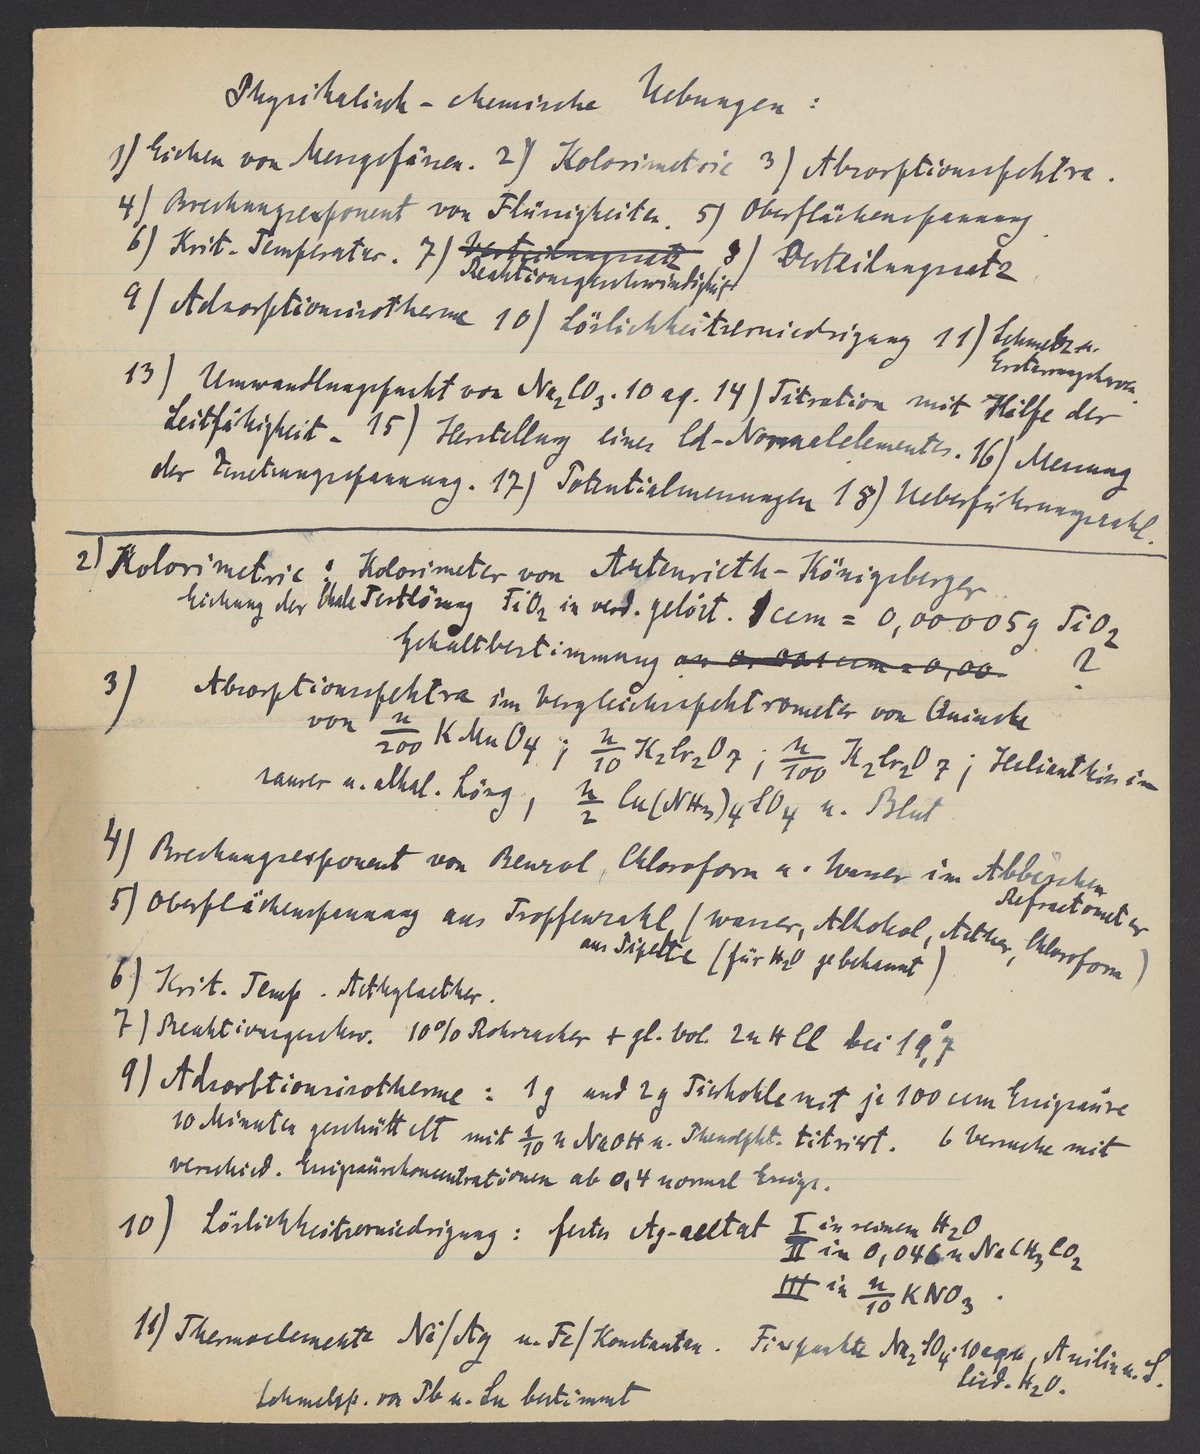 Physikalisch-chemische Uebungen:
1) Eichen von Messgefässen. 2) Kolorimetrie 3) Absorptionsspektra.
4) Brechungsexponent von Flüssigkeiten. 5) Oberflächenspannung
6) Krit. Temperatur. 7) Verteilungssatz 8) Verteilungssatz
Reaktionsgeschwindigkeit
9) Adsorptionsisotherme 10) Löslichkeitserniedrigung 11) Schmelz u.
Erstarrungskurven.
13) Umwandlungspunkt von Na2CO3.10 aq. 14) Titration mit Hilfe der
Leitfähigkeit. 15) Herstellung eines Cd-Normalelementes. 16) Messung
der Zersetzungsspannung. 17) Potentialmessungen 18) Ueberführungszahl.
2) Kolorimetrie: Kolorimeter von Autenrieth-Königsberger
Eichung der Skala Testlösung TiO2 in verd. gelöst. 1 ccm = 0,00005g TiO2
Gehaltbestimmung an 0,001 ccm = 0,00 ?
3) Absorptionsspektra im Vergleichsspektrometer von Quincke
von n/200 KMnO4; n/10 K2Cr2O7; n/100 K2Cr2O7; Helianthin in
saurer u. alkal. Lösg, n/2 Cu(NH3)4SO4 u. Blut
4) Brechungsexponent von Benzol, Chloroform u. Wasser im Abbeschen
Refractometer
5) Oberflächenspannung aus Tropfenzahl (wasser, Alkohol, Aether, Chloroform)
aus Pipette (für H2O gebekannt)
6) Krit. Temp. Aethylaether.
7) Reaktionsgeschw. 10% Rohrzucker + gl. Vol. 2n HCl bei 19,°7
9) Adsorbtionsisotherme: 1g und 2g Tierkohle mit je 100 ccm Essigsäure
10 Minuten geschüttelt mit 1/10 n NaOH u. Phenolpht. titriert. 6 Versuche mit
verschied. Essigsäurekonzentrationen ab 0,4 normal Essigs.
10) Löslichkeitserniedrigung: festes Ag-acetat I in reinem H2O
II in 0,046 n NaCH3CO2
III in n/10 KNO3.
11) Thermoelemente Ni/Ag u. Fe/Konstantan. Fixpunkte Na2SO4.10aqu, Anilin u. S.
Sied. H2O.
Schmelzp. von Pb u. Sn bestimmt